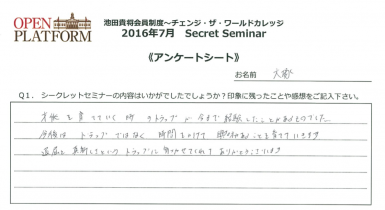 OPEN
PLATFORM
池田貴将会員制度～チェンジ・ザ・ワールドカレッジ
2016年7月 Secret Seminar
《アンケートシート》
お名前
Q1. シークレットセミナーの内容はいかがでしたでしょうか？印象に残ったことや感想をご記入下さい。
才能を育てていく時のトラップが今まで経験したことがあるものでした
今後はトラップではなく時間をかけて興味あることを育てていきます
退屈と真新しさというトラップに気づかせてくれてありがとうございます